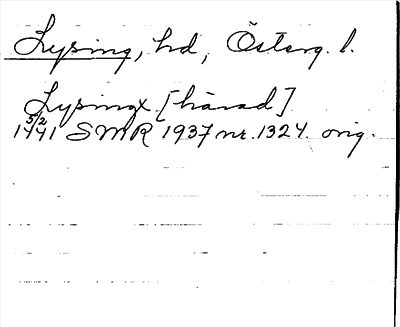 Lysing, hd, Österg. l.
Lysingx [härad]
5/2
1441 SMR 1937 nr. 1324 orig.